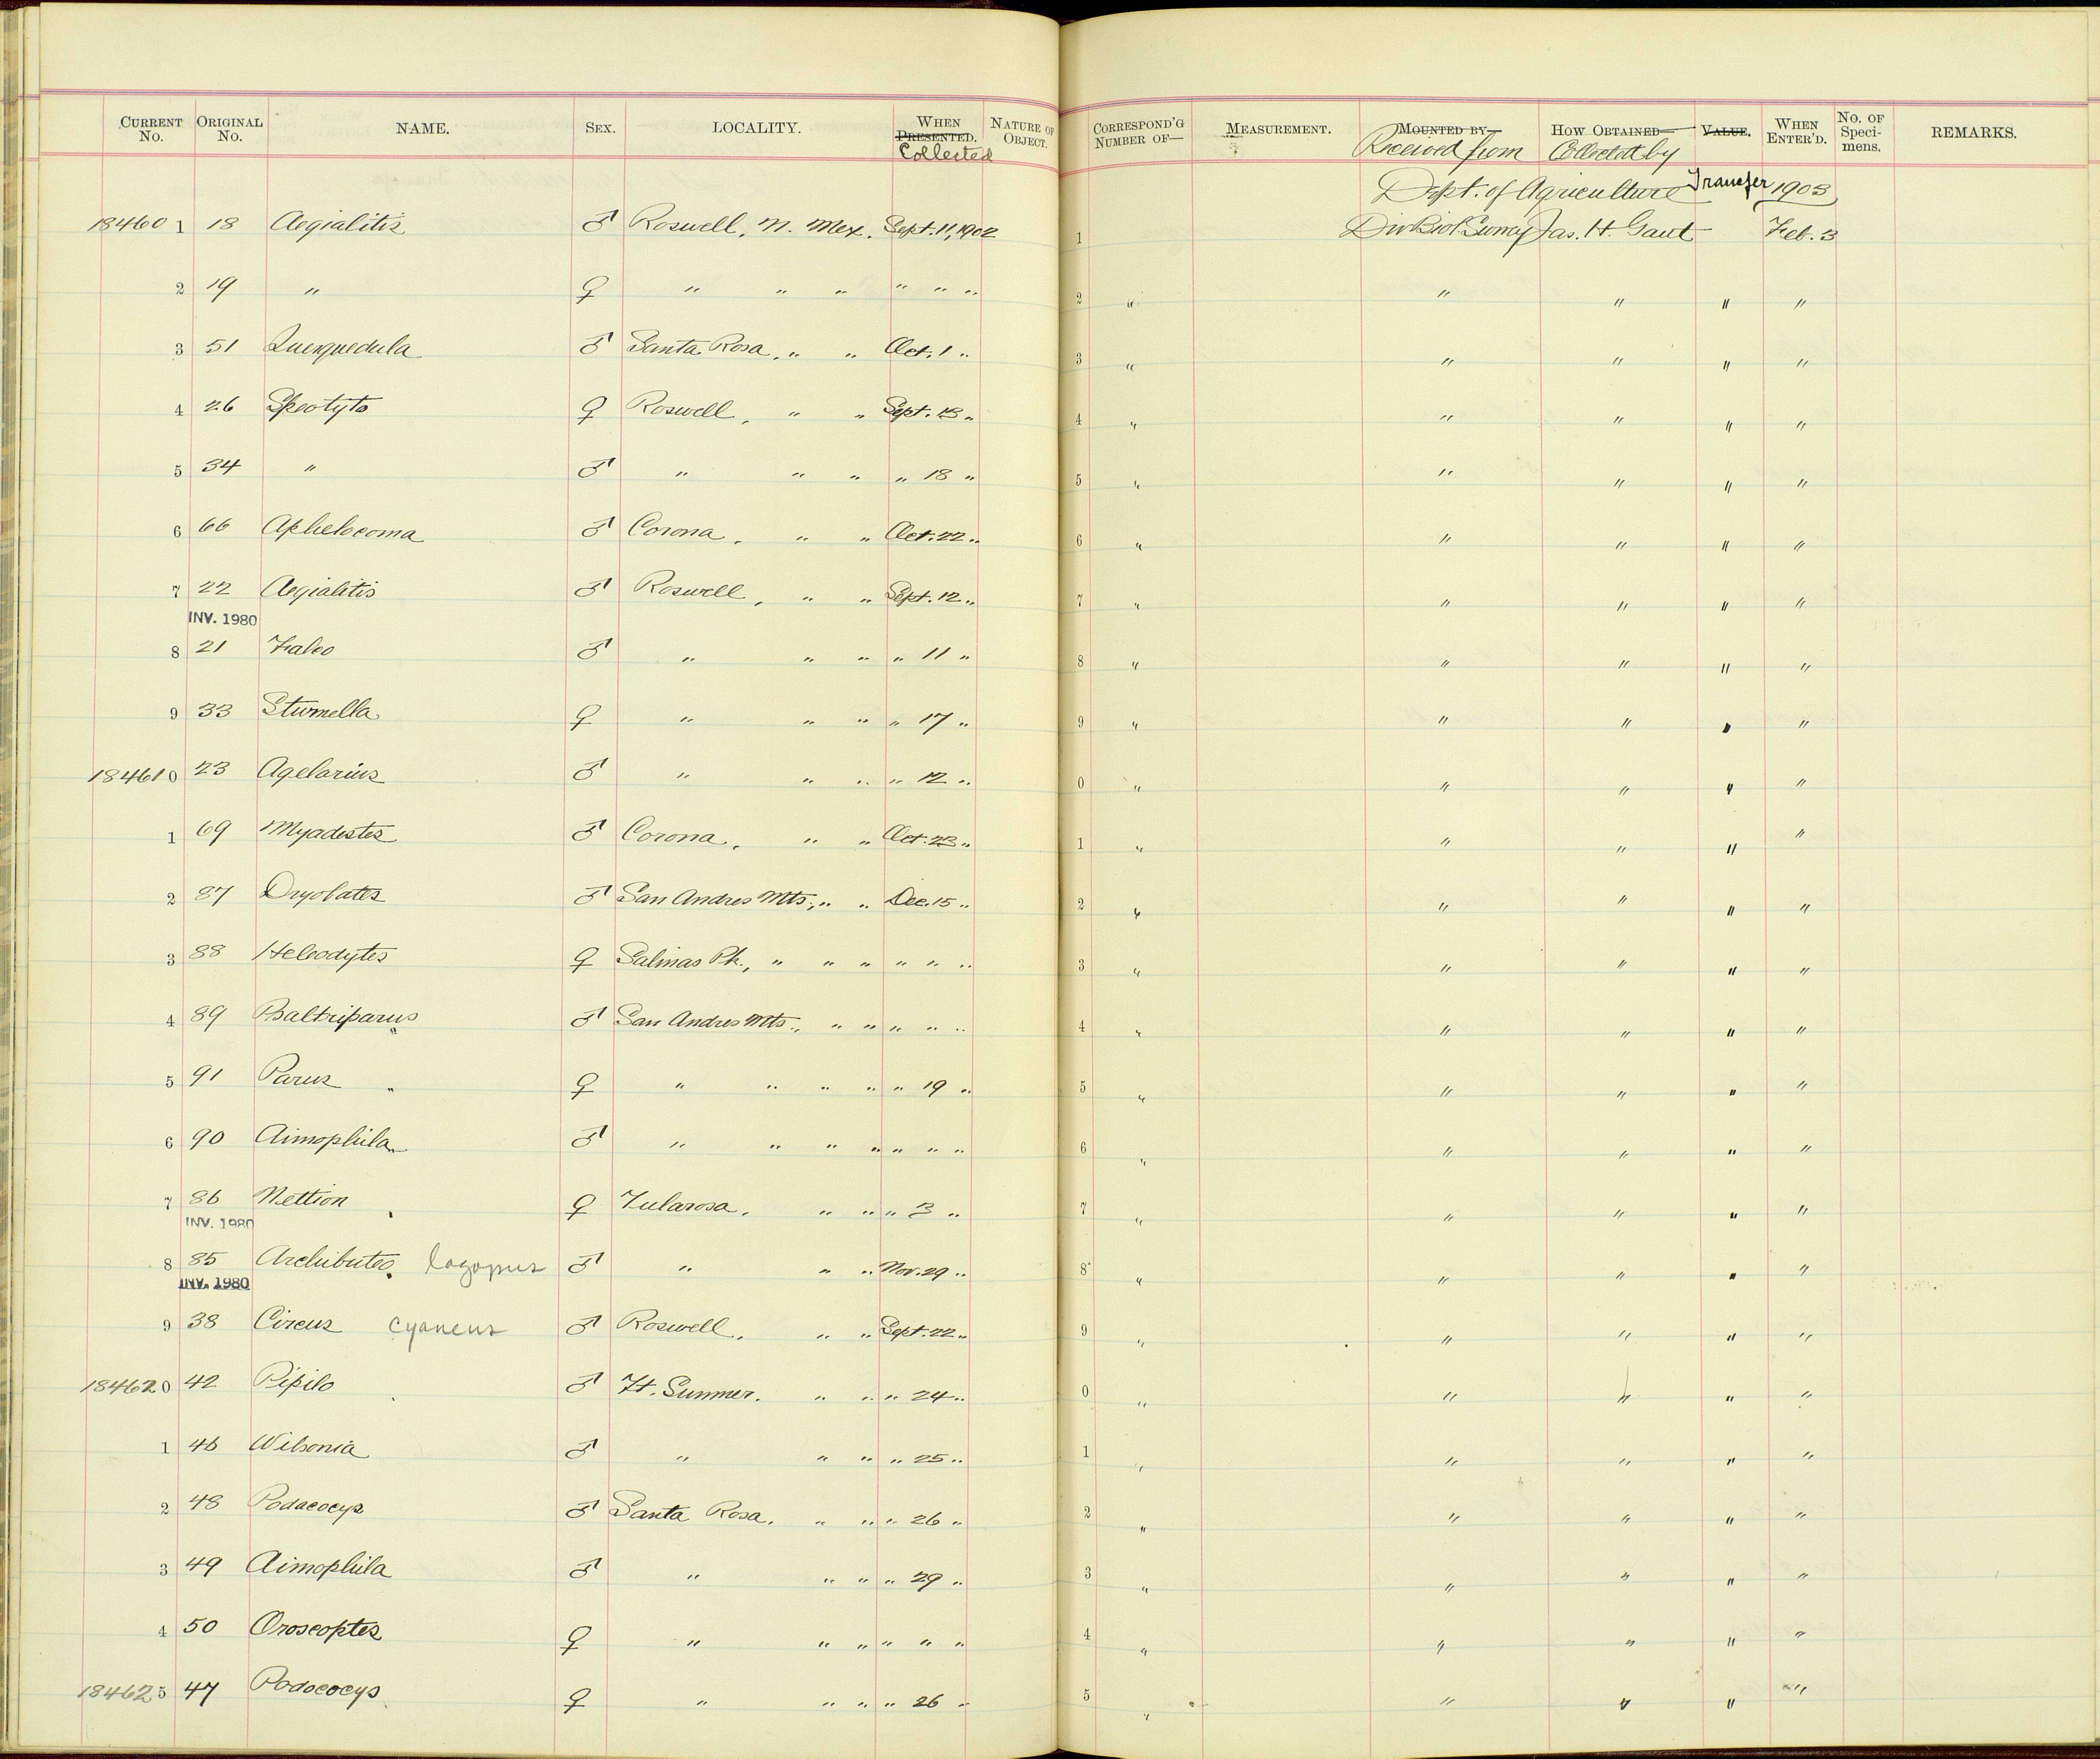 CURRENT No. ORIGINAL No. NAME. SEX. LOCALITY. WHEN PRESENTED. Collected NATURE OF OBJECT. CORRESPOND'G NUMBER OF— MEASUREMENT. MOUNTED BY— Received from HOW OBTAINED— Collected by VALUE. WHEN ENTER'D. No. OF Speci-mens. REMARKS.
Dept. of Agriculture Transfer 1903
18460 1 18 Aegialitis ♂ Roswell, N. Mex. Sept. 11, 1902 1 Div Biol. Survey Jas. H. Gaut Feb. 3
2 19 " ♀ " " " " " " 2 " " " " "
3 51 Querquedula ♂ Santa Rosa, " " Oct. 1 " 3 " " " " "
4 26 Speotyto ♀ Roswell, " " Sept. 13 " 4 " " " " "
5 34 " ♂ " " " " 18 " 5 " " " " "
6 66 Aphelocoma ♂ Corona, " " Oct. 22 " 6 " " " " "
7 22 Aegialitis ♂ Roswell, " " Sept. 12 " 7 " " " " "
INV. 1980
8 21 Falco ♂ " " " " 11 " 8 " " " " "
9 33 Sturnella ♀ " " " " 17 " 9 " " " " "
18461 0 23 Agelarius ♂ " " " " 12 " 0 " " " " "
1 69 Myadestes ♂ Corona, " " Oct. 23 " 1 " " " " "
2 87 Dryobates ♂ San Andres Mts., " " Dec. 15 " 2 " " " " "
3 88 Heleodytes ♀ Salinas Pk., " " " " " " 3 " " " " "
4 89 Psaltriparus ♂ San Andres Mts., " " " " " 4 " " " " "
5 91 Parus " ♀ " " " " " 19 " 5 " " " " "
6 90 Aimophila ♂ " " " " " " " 6 " " " " "
7 86 Nettion ♀ Tularosa, " " " 3 " 7 " " " " "
INV. 1980
8 85 Archibuteo lagopus ♂ " " " Nov. 29 " 8 " " " " "
INV. 1980
9 38 Circus cyaneus ♂ Roswell, " " Sept. 22 " 9 " " " " "
18462 0 42 Pipilo ♂ Ft. Sumner. " " " 24 " 0 " " " " "
1 46 Wilsonia ♂ " " " " 25 " 1 " " " " "
2 48 Podacocys ♂ Santa Rosa, " " " 26 " 2 " " " " "
3 49 Aimophila ♂ " " " " 29 " 3 " " " " "
4 50 Oroscoptes ♀ " " " " " " 4 " " " " "
18462 5 47 Podococys ♀ " " " " 26 " 5 " " " " "